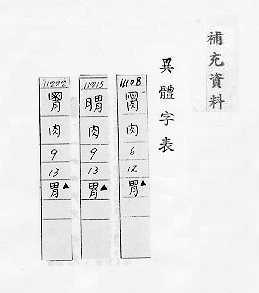 補充資料
異體字表
肉
6
12
胃▲
11215
肉
9
13
胃▲
11222
肉
9
13
胃▲